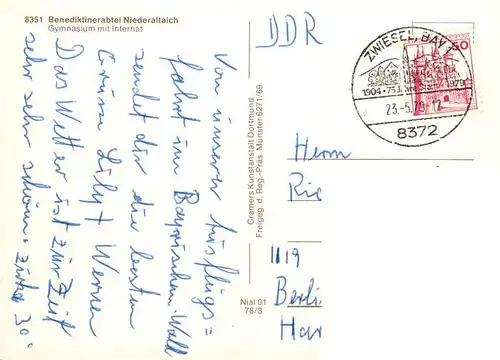 8351 Benediktinerabtei Niederaltaich
Gymnasium mit Internat
Von unserer Ausflugs=
fahrt im Bayrischen Wald
sendet dir die besten
Grüsse Lily + Werner
Das Wetter ist zur Zeit
sehr sehr schön. zirka 30°
Cramers Kunstanstalt Dortmund
Freigeg. d. Reg.-Präs. Münster 6271/69
Nial 01
78/3
DDR
ZWIESEL, BAY 1
50
1904 · 75 Jahre Stadt · 1979
23.-5.79.-12
8372
Herrn
Ric
1119
Berli
Har